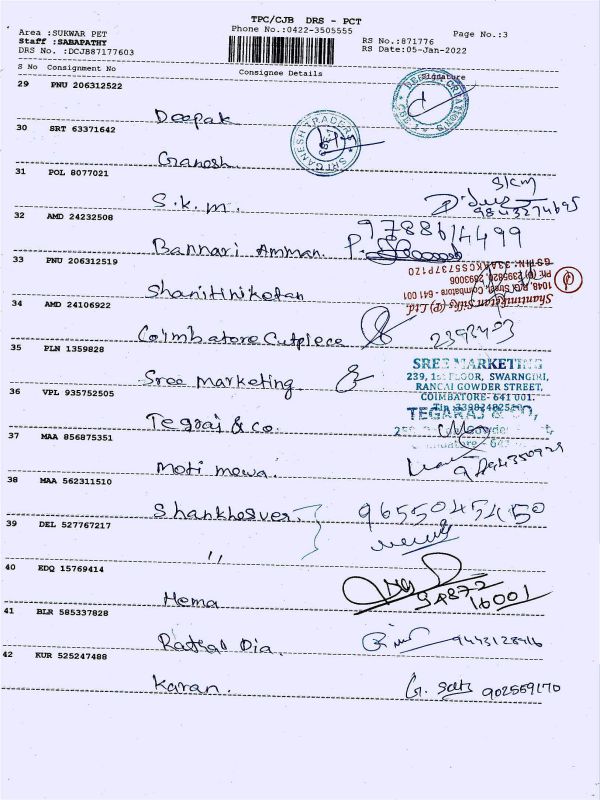 TPC/CJB DRS - PCT
Area :SUKWAR PET
Phone No.:0422-3505555
Page No.:3
Staff :SABAPATHY
RS No.:871776
DRS No. :DCJB87177603
RS Date:05-Jan-2022
S No Consignment No
Consignee Details
Signature
29 PNU 206312522
Deepak
30 SRT 63371642
SRI GANESH TRADERS
Ganesh
31 POL 8077021
S.k.m.
SKM
9843274695
32 AMD 24232508
Bannari Amman.
33 PNU 206312519
Shanitiniketan
Shantiniketan Silks (P) Ltd.
34 AMD 24106922
Coimbatore Cutpiece
35 PLN 1359828
Sree Marketing
SREE MARKETING
239, 1st FLOOR, SWARNGIRI,
RANCAI GOWDER STREET,
COIMBATORE- 641 001.
36 VPL 935752505
Tegraj & co.
TEGARAJ & CO,
37 MAA 856875351
Moti mewa.
38 MAA 562311510
Shankhesver.
39 DEL 527767217
"
40 EDQ 15769414
Hema
94872
16001
41 BLR 585337828
Rathal Dia.
42 KUR 525247488
Karan.
902559170